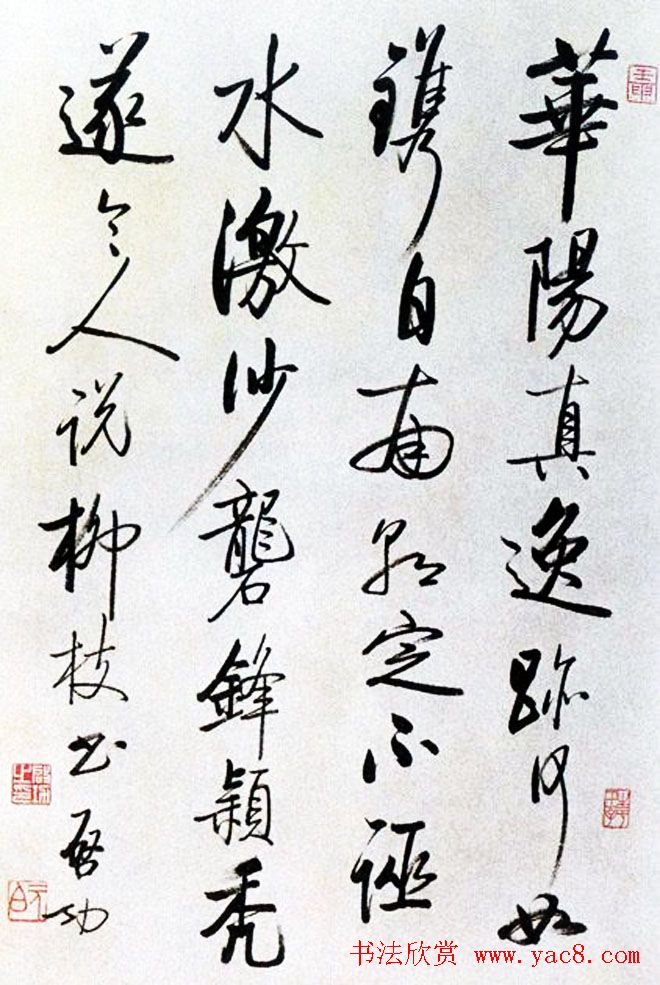 華陽真逸跡何如
鐫自南朝定不誣
水激沙礱鋒穎秃
遂令人说柳枝书 启功
书法欣赏 www.yac8.com